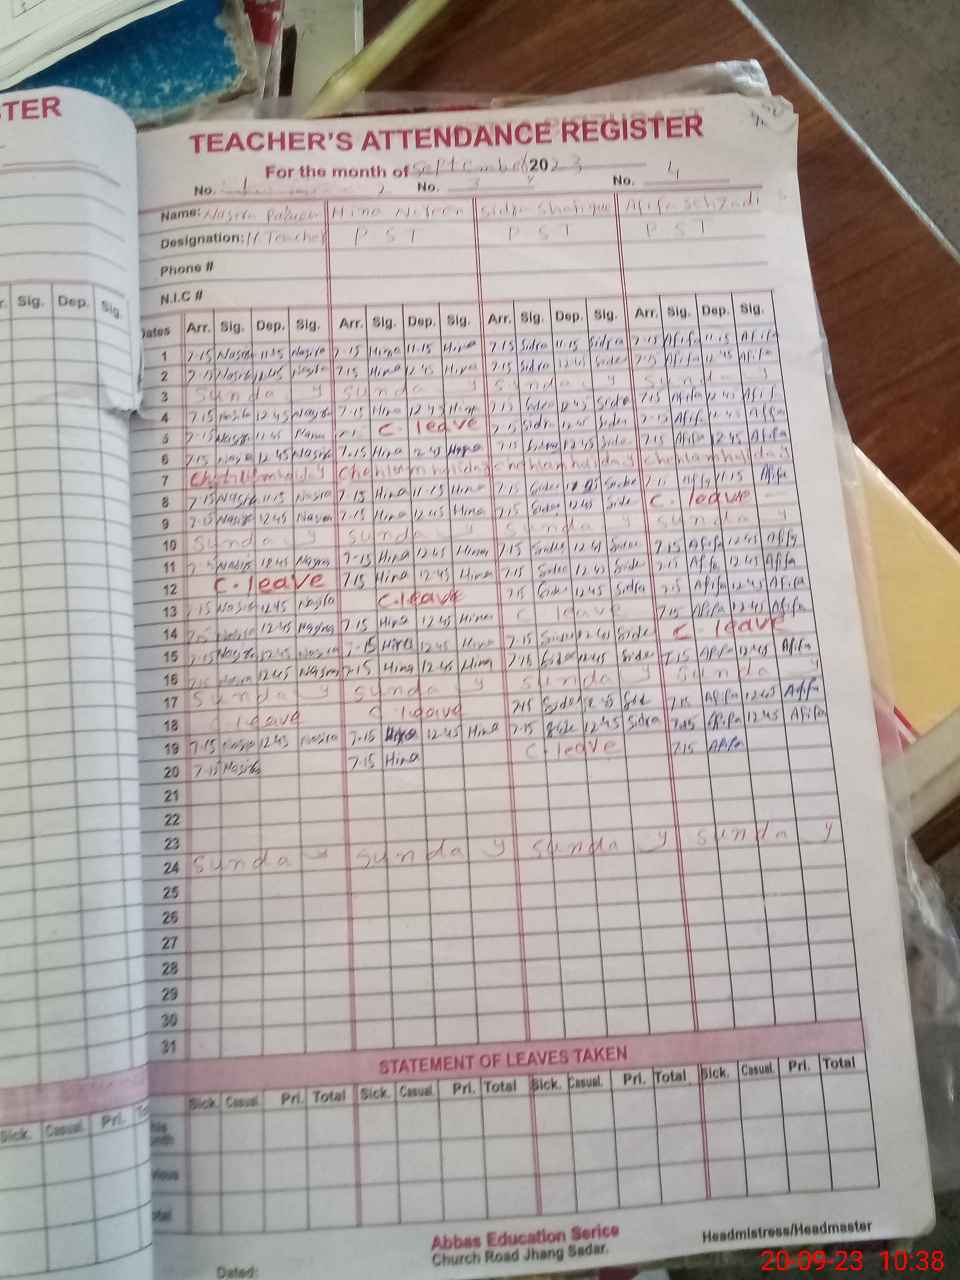 TER
TEACHER'S ATTENDANCE REGISTER
For the month of September 2023
No. 1 No. 3 No. 4
Name: Hina Sidra Shafique Afifa
Designation: H Teacher PST PST PST
Phone #
N.I.C #
Sig. Dep. Sig.
Dates Arr. Sig. Dep. Sig. Arr. Sig. Dep. Sig. Arr. Sig. Dep. Sig. Arr. Sig. Dep. Sig.
1 7-15 11-15 7-15 Hina 11-15 Hina 7-15 Sidra 11-15 Sidra 7-15 Afifa 11-15 Afifa
2 7-15 12 45 7-15 Hina 12 45 Hina 7-15 Sidra 12 45 Sidra 7-15 Afifa 12 45 Afifa
3 Sunday Sunday Sunday Sunday
4 7-15 12 45 7-15 Hina 12 45 Hina 7-15 Sidra 12 45 Sidra 7-15 Afifa 12 45 Afifa
5 7-15 12 45 C. leave 7-15 Sidra 12 45 Sidra 7-15 Afifa 12 45 Afifa
6 7-15 12 45 7-15 Hina 12 45 Hina 7-15 Sidra 12 45 Sidra 7-15 Afifa 12 45 Afifa
7 Chehlam holiday Chehlam holiday Chehlam holiday Chehlam holiday
8 7-15 11-15 7-15 Hina 11-15 Hina 7-15 Sidra Sidra 7-15 11-15 Afifa
9 7-15 12 45 7-15 Hina 12 45 Hina 7-15 Sidra 12 45 Sidra C. leave
10 Sunday Sunday Sunday Sunday
11 12 45 7-15 Hina 12 45 Hina 7-15 Sidra 12 45 Sidra 7-15 Afifa 12 45 Afifa
12 C. leave 7-15 Hina 12 45 Hina 7-15 Sidra 12 45 Sidra 7-15 Afifa 12 45 Afifa
13 7-15 12 45 C. leave 7-15 Sidra 12 45 Sidra 7-15 Afifa 12 45 Afifa
14 7-15 12 45 7-15 Hina 12 45 Hina C leave 7-15 Afifa 12 45 Afifa
15 7-15 12 45 7-15 Hina 12 45 Hina 7-15 Sidra 12 45 Sidra C. leave
16 7-15 12 45 7-15 Hina 12 45 Hina 7-15 Sidra 12 45 Sidra 7-15 Afifa 12 45 Afifa
17 Sunday Sunday Sunday Sunday
18 C leave C leave 7-15 7-15 Afifa 12 45 Afifa
19 7-15 12 45 7-15 Hina 12 45 Hina 7-15 12 45 Sidra 7-15 Afifa 12 45 Afifa
20 7-15 7-15 Hina C. leave 7-15 Afifa
21
22
23
24 Sunday Sunday Sunday Sunday
25
26
27
28
29
30
31
STATEMENT OF LEAVES TAKEN
Sick. Casual. Pri.
Sick. Casual. Pri. Total Sick. Casual. Pri. Total Sick. Casual. Pri. Total Sick. Casual. Pri. Total
Abbas Education Serice
Church Road Jhang Sadar.
Headmistress/Headmaster
Dated:
20-09-23 10:38